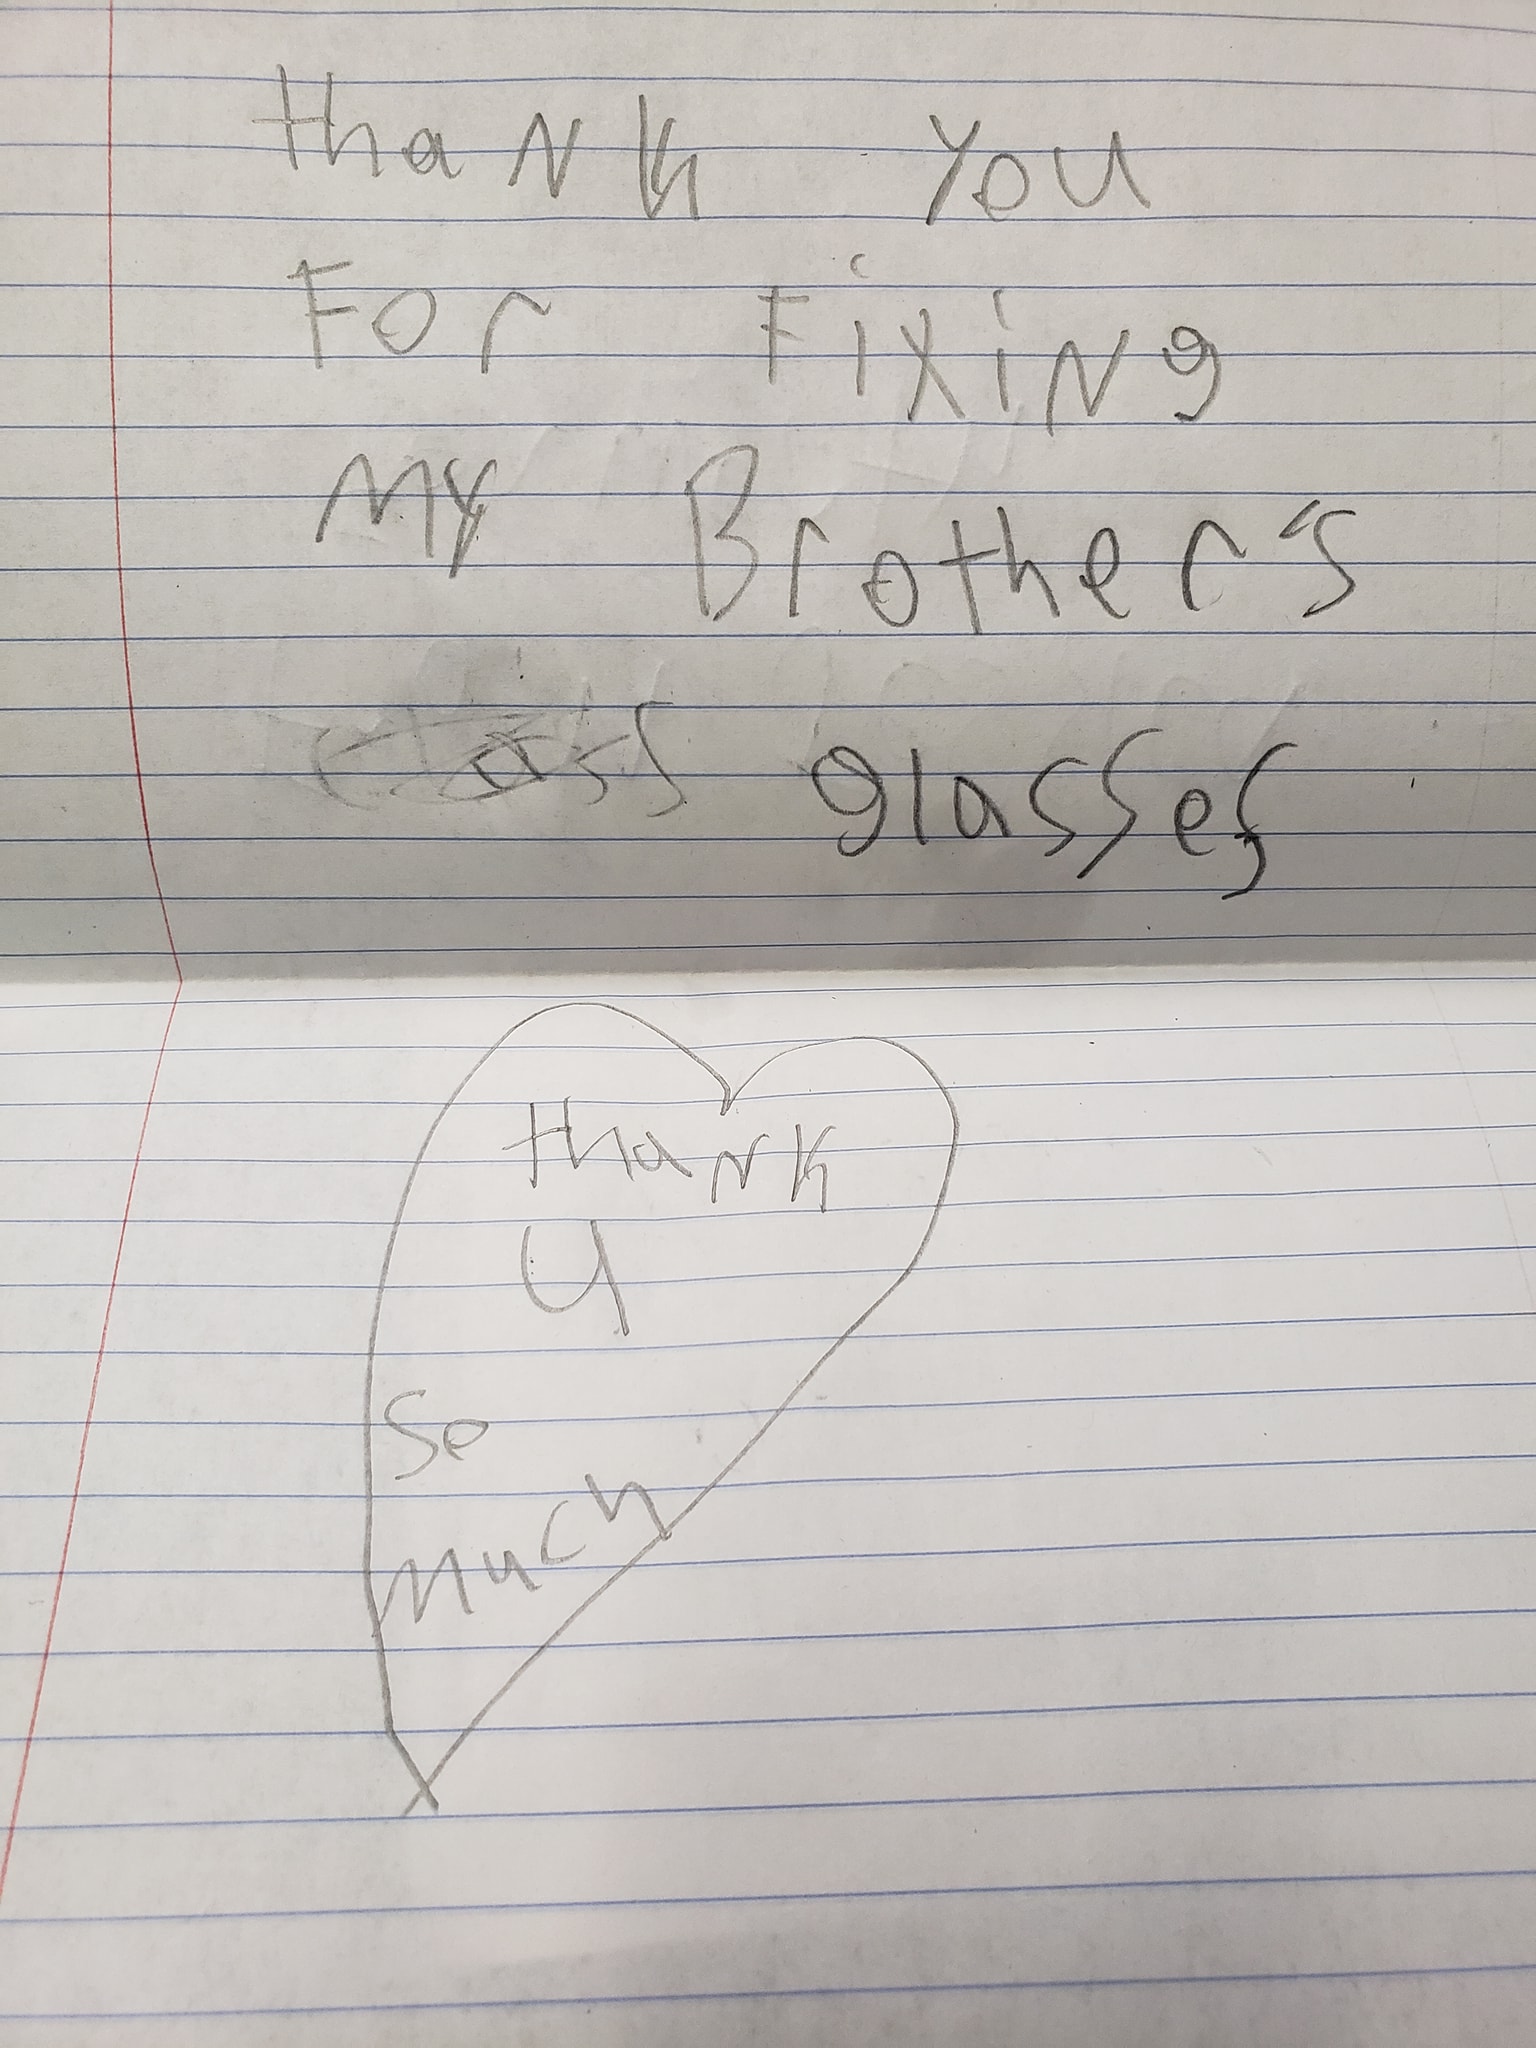 thank you
For Fixing
My Brother's
glasses
thank
U
So
Much